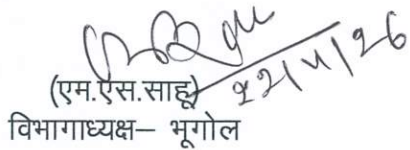 22/4/26
(एम.एस.साहू)
विभागाध्यक्ष– भूगोल